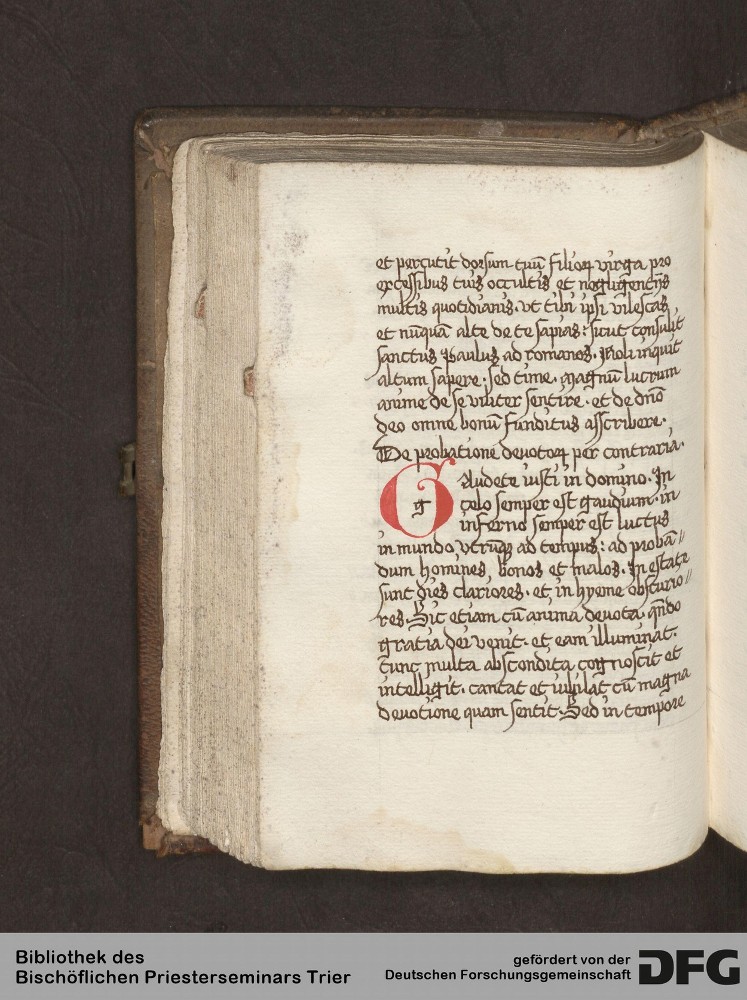 et percutit dorsum tuū filioꝝ virga pro
excessibus tuis occultis et negligentijs
multis quotidianis. vt tibi ipsi vilescas
et nūquā alte de te sapias: sicut consulit
sanctus Paulus ad romanos. Noli inquit
altum sapere. sed time. Magnū lucrum
anime de se viliter sentire. et de dn̄o
deo omne bonū funditus asscribere.
De probatione deuotoꝝ per contraria.
GAudete iusti in domino. In
g
celo semper est gaudium. in
inferno semper est luctus
in mundo, vtrūqꝫ ad tempus: ad probā//
dum homines, bonos et malos. In estate
sunt dies clariores. et in hyeme obscurio//
res. Sic etiam cū anima deuota. qn̄do
gratia dei venit. et eam illuminat.
tunc multa abscondita cognoscit et
intelligit. cantat et iubilat cū magna
deuotione quam sentit. Sed in tempore
Bibliothek des
Bischöflichen Priesterseminars Trier
gefördert von der
Deutschen Forschungsgemeinschaft
DFG